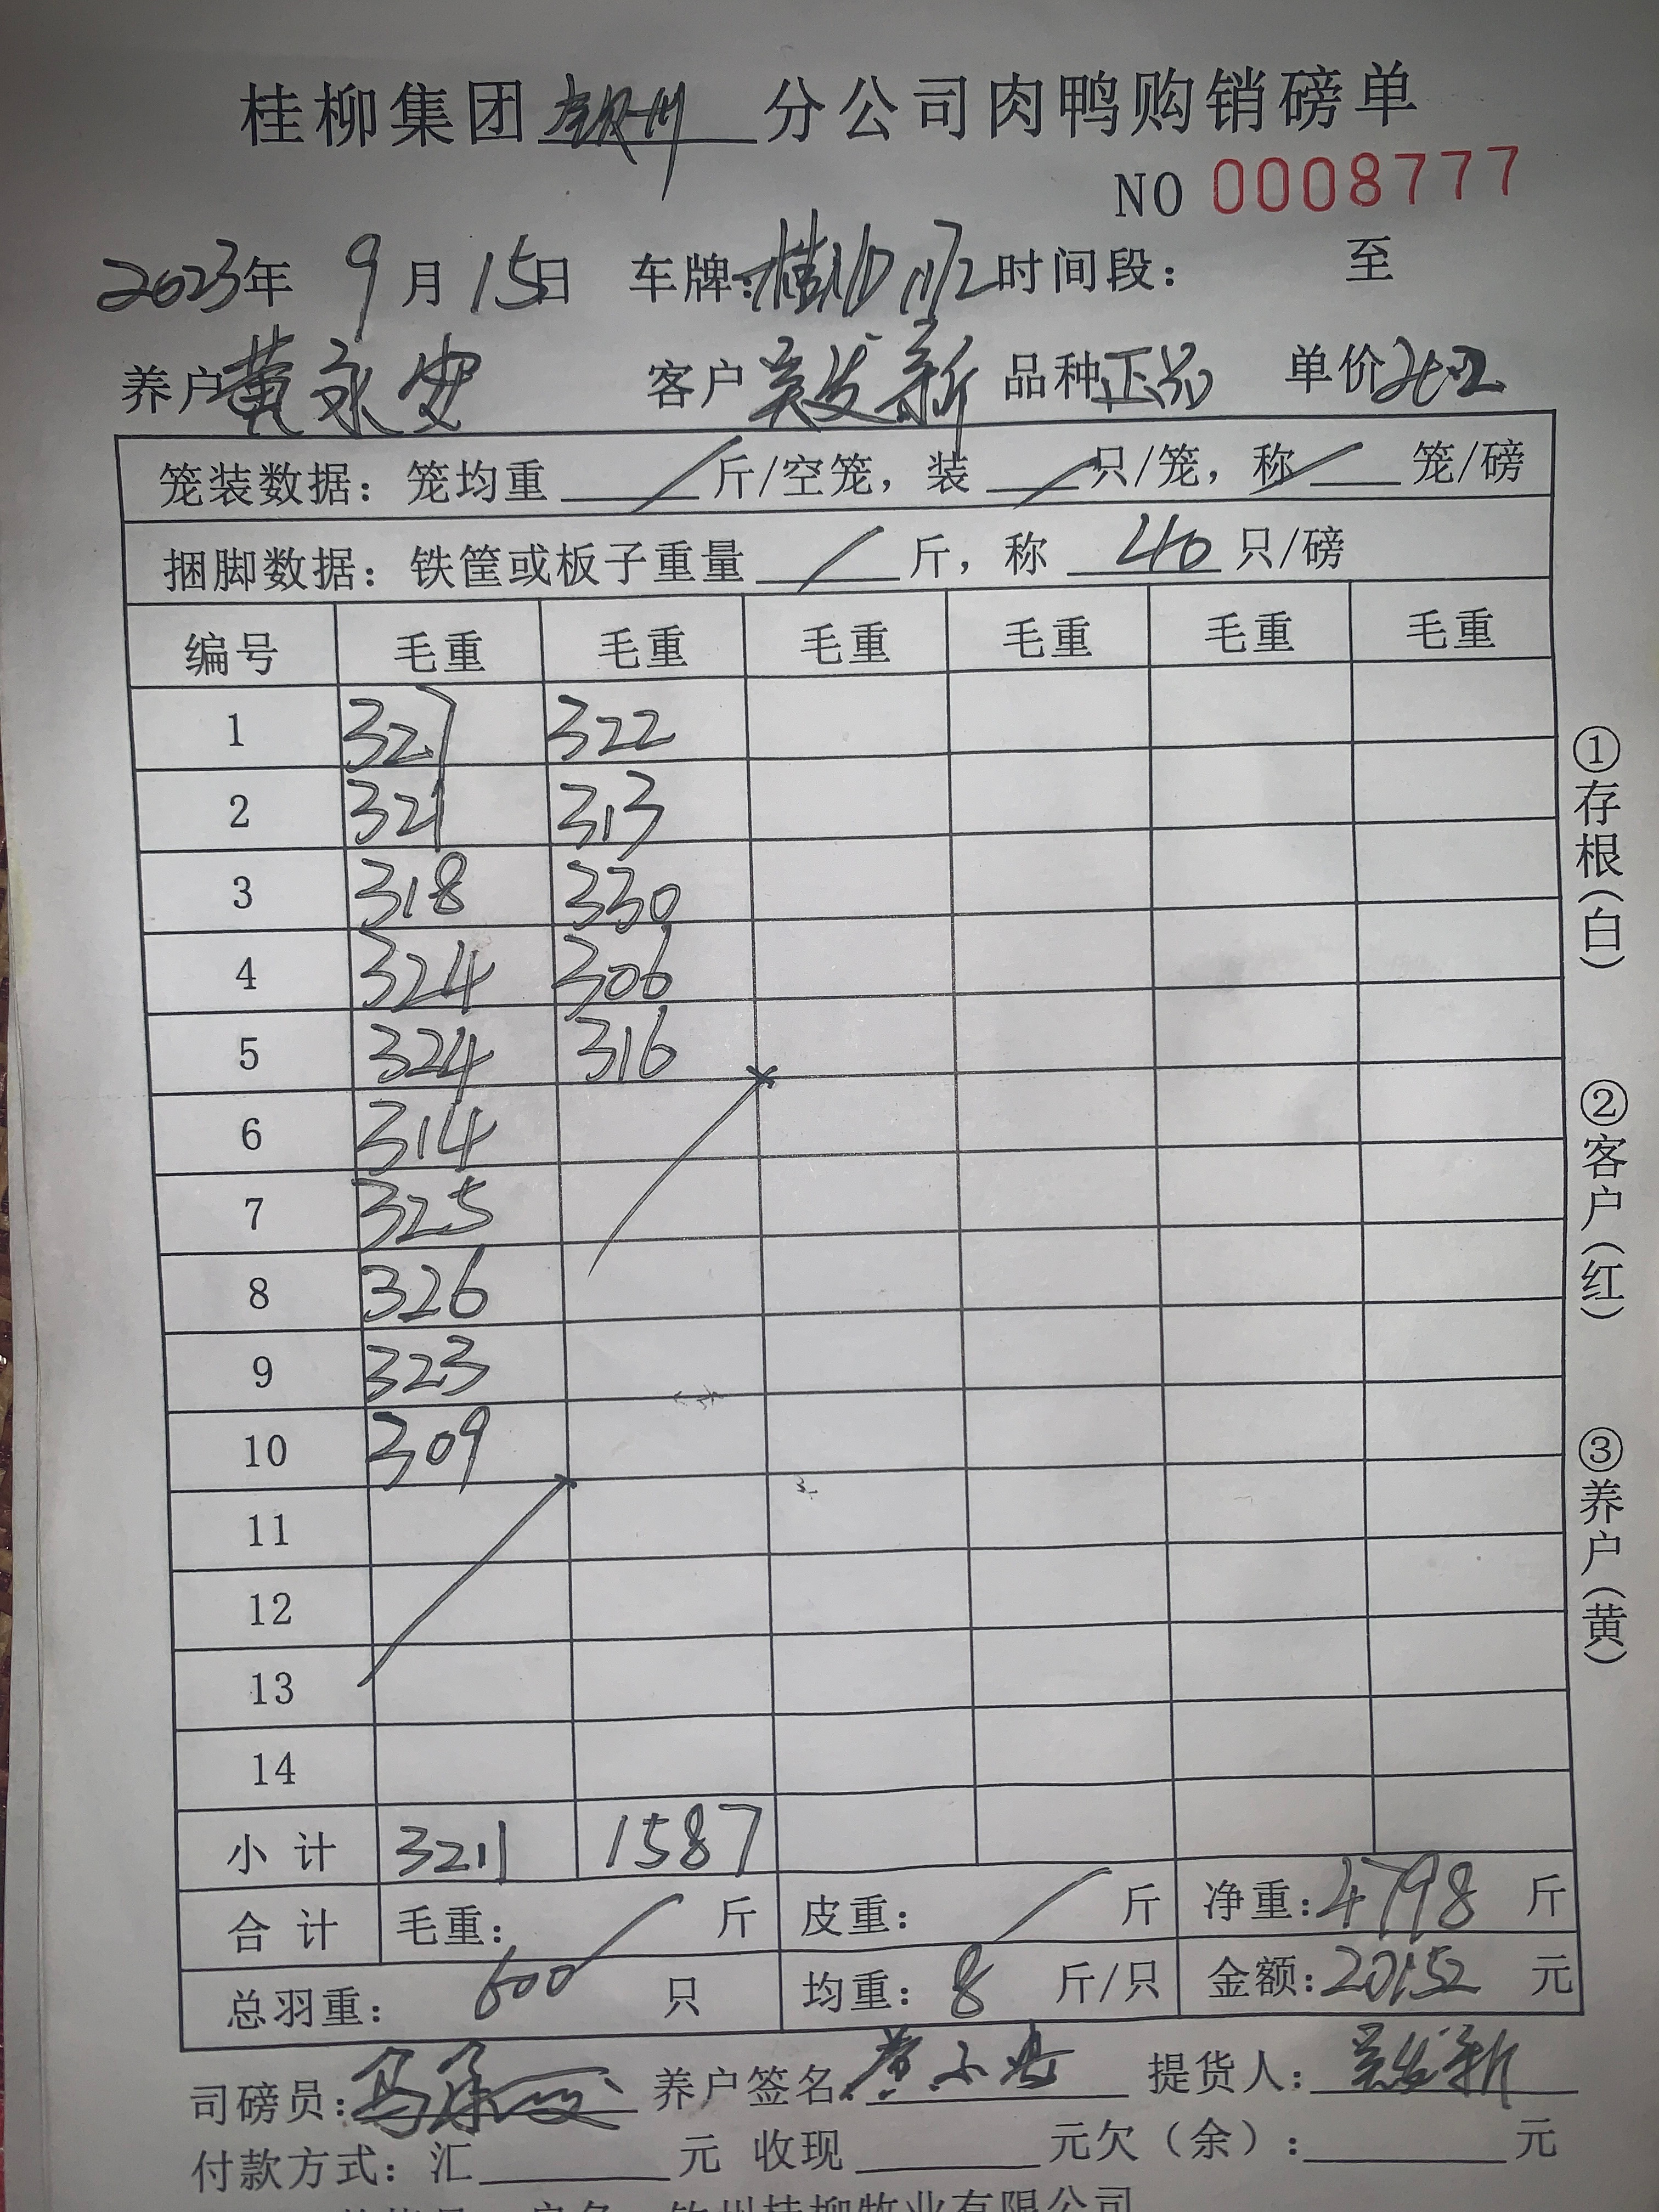 桂柳集团钦州分公司肉鸭购销磅单
NO 0008777
2023年 9月 15日 车牌: 时间段: 至
养户黄永安 客户吴发新 品种正品 单价4.2
笼装数据: 笼均重 斤/空笼, 装 只/笼, 称 笼/磅
捆脚数据: 铁筐或板子重量 斤, 称 40 只/磅
编号 毛重 毛重 毛重 毛重 毛重 毛重
1 327 322
2 321 313
3 318 330
4 324 306
5 324 316
6 314
7 325
8 326
9 323
10 309
11
12
13
14
小计 3211 1587
合计 毛重: 斤 皮重: 斤 净重:4798 斤
总羽重: 600 只 均重: 8 斤/只 金额:20152 元
司磅员: 养户签名: 提货人:吴发新
付款方式: 汇 元 收现 元欠(余): 元
钦州桂柳牧业有限公司
①存根(白)
②客户(红)
③养户(黄)